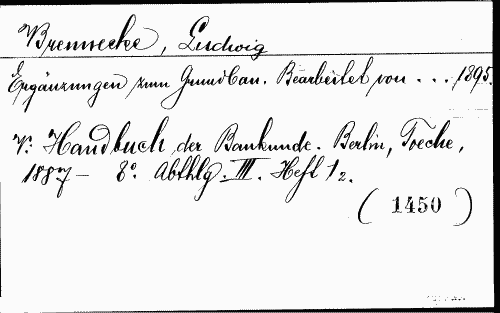 Brennecke, Ludwig
Ergänzungen zum Grundbau. Bearbeitet von . . . 1895.
V: Handbuch der Baukunde. Berlin, Toeche,
1887 — 8°. Abthlg. III. Heft 1 2.
( 1450 )